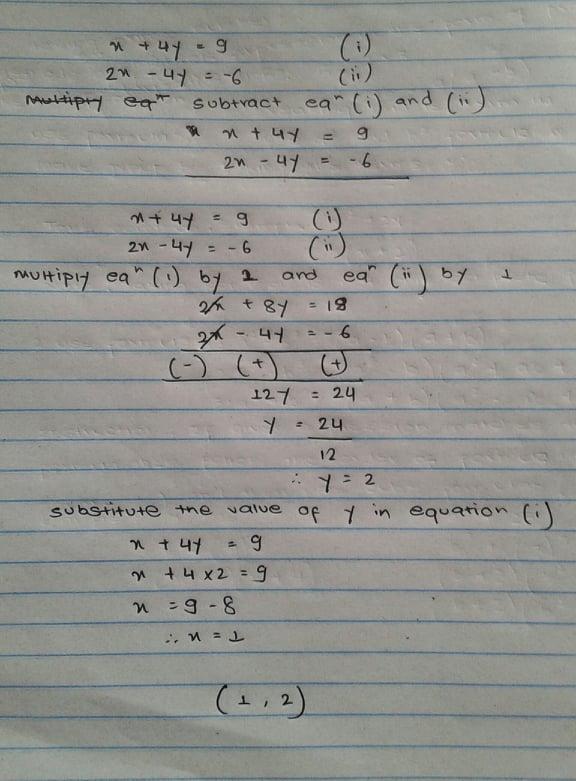 x + 4y = 9 (i)
2x - 4y = -6 (ii)
Multiply eqⁿ subtract eqⁿ (i) and (ii)
x x + 4y = 9
2x - 4y = -6
x + 4y = 9 (i)
2x - 4y = -6 (ii)
multiply eqⁿ (i) by 2 and eqⁿ (ii) by 1
2x + 8y = 18
2x - 4y = -6
(-) (+) (+)
12y = 24
y = 24
12
∴ y = 2
substitute the value of y in equation (i)
x + 4y = 9
x + 4 x2 = 9
x = 9 - 8
∴ x = 1
(1, 2)